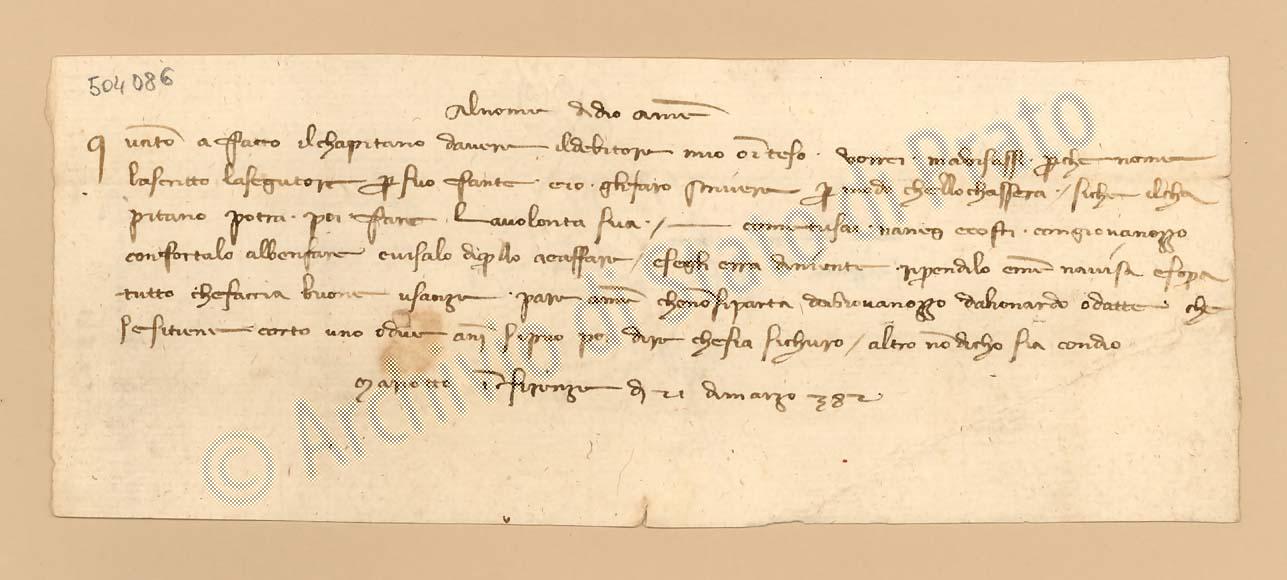 504086
Al nome di dio ame
Quanto a ffatto il chapitano davere il debitore mio o inteso. vorrei mavisassi p che nome
la scritto lasegutore p suo fante. e io gli faro scrivere p modo chello chassera / siche il cha
pitano potra. poi ffare. la volonta sua / — chome tusai costi. con giovanozzo
confortalo a ben fare e avisalo di qllo a cassare / e segli erra di niente. ripendilo e me navisa e sopra
tutto che faccia buone usanze. pare a me che no si parta da giovanozzo da lionardo o da tte. che
se si tiene corto uno o due ani si puo poi dire che sia sichuro / altro no dicho sia con dio
Mariotto in firenze di 21 di marzo 382
© Archivio di Stato di Prato